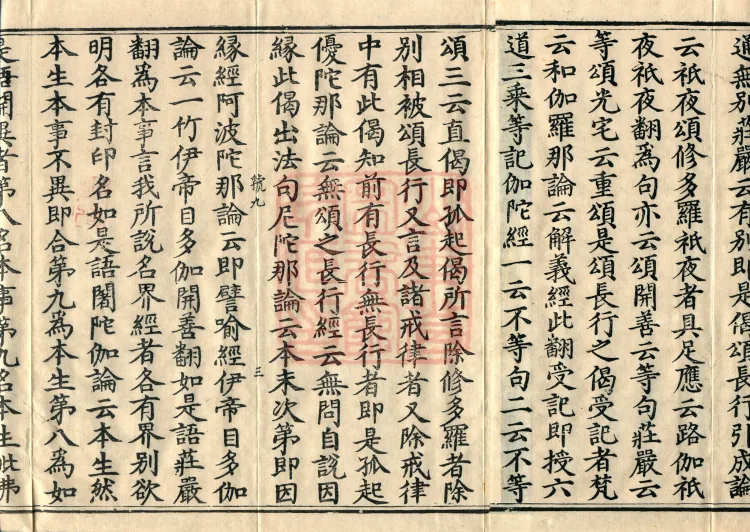 通無别莊嚴云有别即是偈頌長行引成論
云祇夜頌修多羅祇夜者具足應云路伽祇
夜祇夜翻爲句亦云頌開善云等句莊嚴云
等頌光宅云重頌是頌長行之偈受記者梵
云和伽羅那論云解義經此翻受記即授六
道三乘等記伽陀經一云不等句二云不等
頌三云直偈即孤起偈所言除修多羅者除
别相被頌長行又言及諸戒律者又除戒律
中有此偈知前有長行無長行者即是孤起
優陀那論云無頌之長行經云無問自說因
緣此偈出法句尼陀那論云本末次第即因
號九
三
緣經阿波陀那論云即譬喻經伊帝目多伽
論云一竹伊帝目多伽開善翻如是語莊嚴
翻爲本事言我所說名界經者各有界别欲
明各有封印名如是語闍陀伽論云本生然
本生本事不異即合第九爲本生第八爲如
是語開異者第八名本事第九名本生此佛